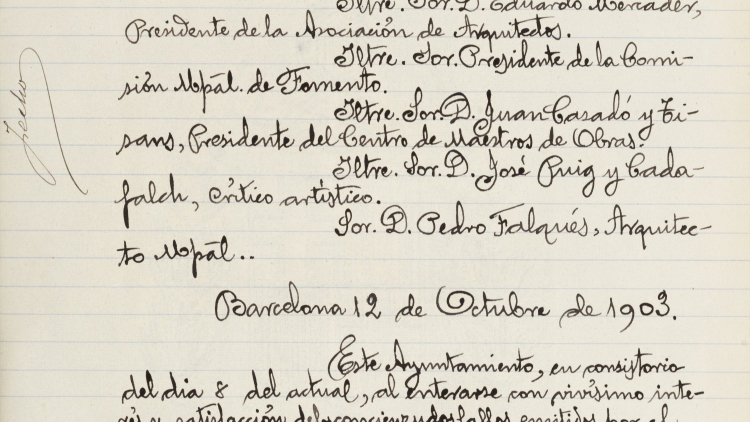 Iltre. Sor. D. Eduardo Mercader,
Presidente de la Asociación de Arquitectos.
Iltre. Sor. Presidente de la Comi-
sión Mpál. de Fomento.
Iltre. Sor. D. Juan Casadó y Ti-
sans, Presidente del Centro de Maestros de Obras.
Iltre. Sor. D. José Puig y Cada-
falch, crítico artístico.
Sor. D. Pedro Falqués, Arquitec-
to Mpál..
Hecho
Barcelona 12 de Octubre de 1903.
Este Ayuntamiento, en consistorio
del dia 8 del actual, al enterarse con vivísimo inte-
rés y satisfacción del concienzudo fallos emitidos por el